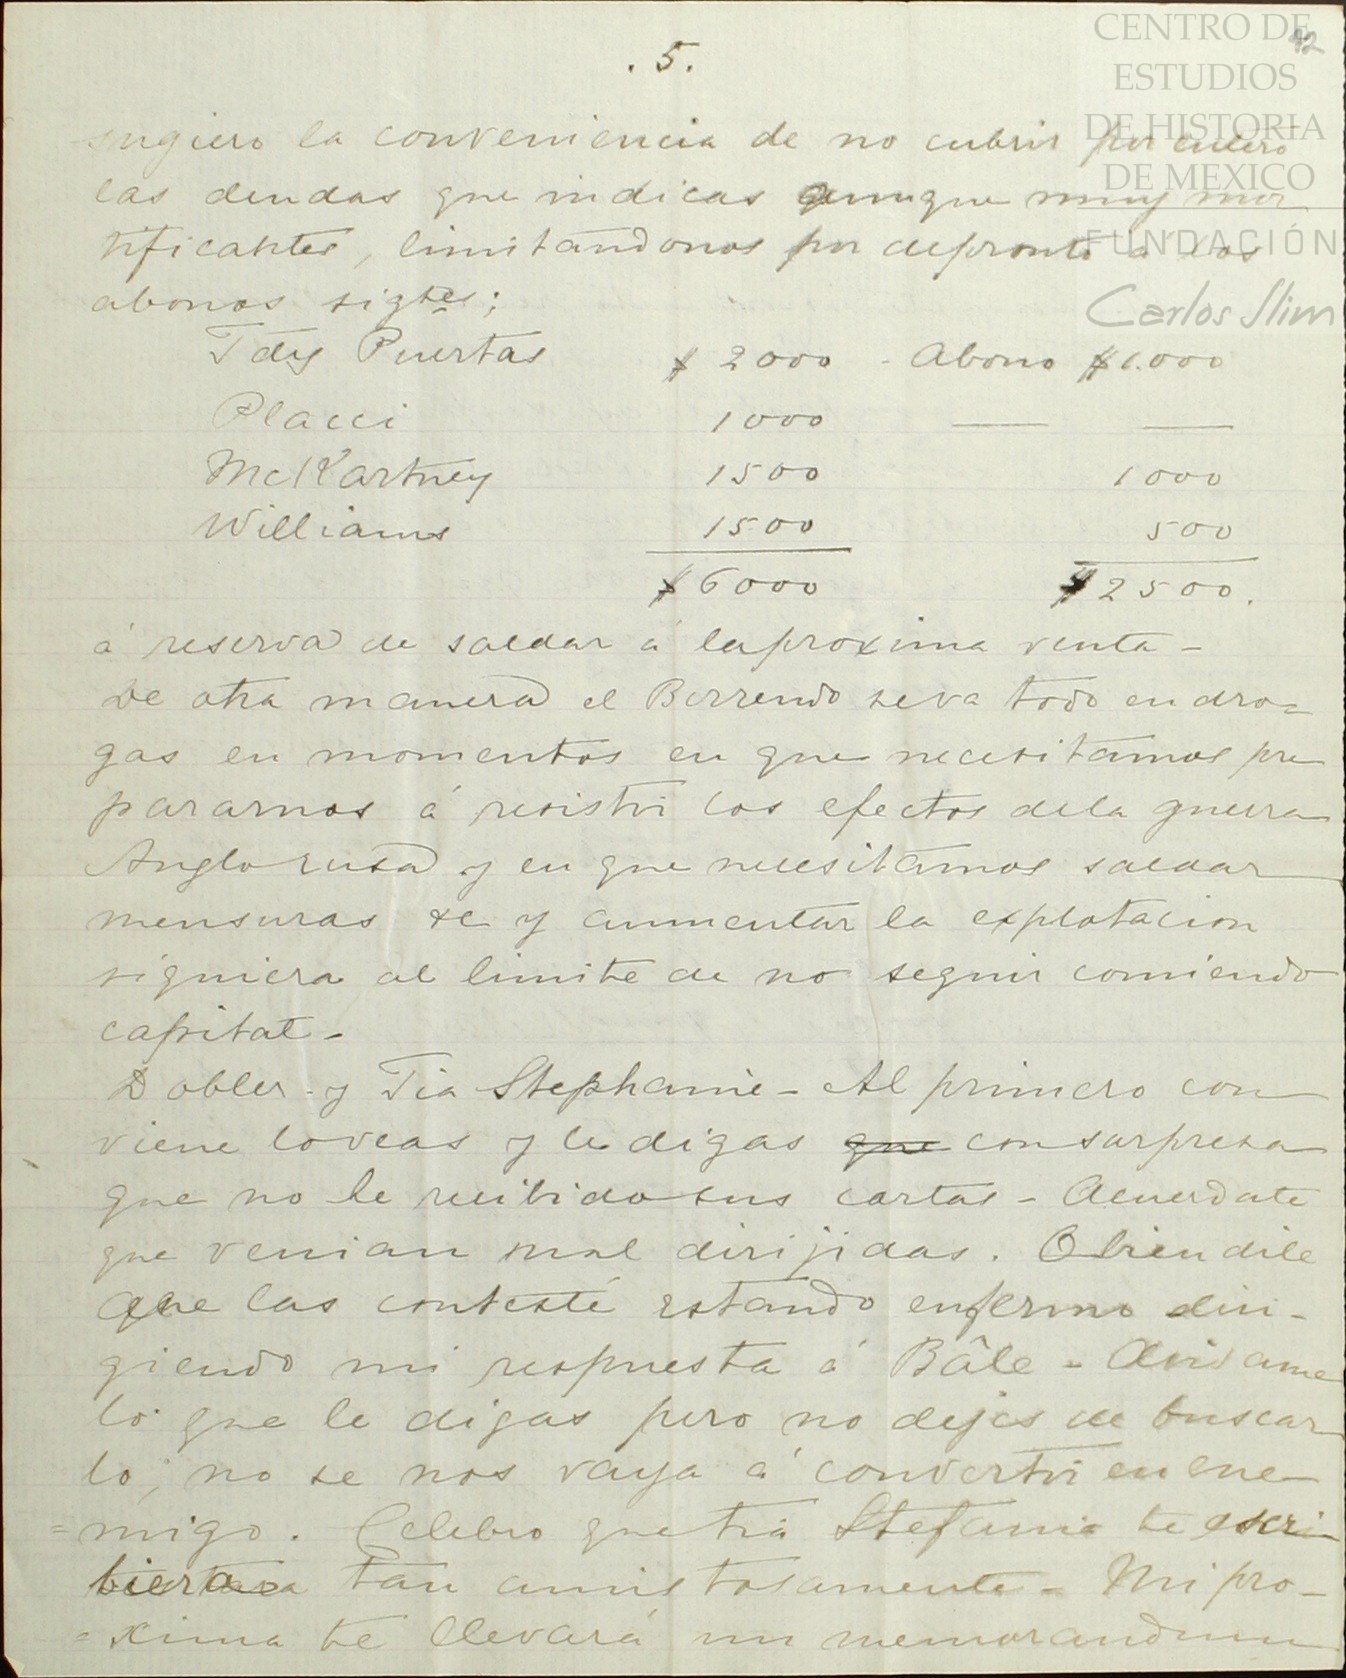 . 5 .
42
CENTRO DE
ESTUDIOS
DE HISTORIA
DE MEXICO
FUNDACIÓN
Carlos Slim
sugiero la conveniencia de no cubrir por entero
las deudas que indicas aunque muy mor
tificantes, limitandonos por depronto á los
abonos sigtes:
Puertas $ 2000 - Abono $ 1.000
Placci 1000 — —
McKartney 1500 1000
Williams 1500 500
$ 6000 $ 2500.
á reserva de saldar á la proxima venta -
De otra manera el Berrendo se va todo en dro=
gas en momentos en que necesitamos pre
pararnos á resistir los efectos de la guerra
Anglo rusa y en que necesitamos saldar
mensuras &c y aumentar la explotacion
siquiera al limite de no seguir comiendo
capital -
Dobler - y Tia Stephanie - Al primero con
viene lo veas y le digas que con sorpresa
que no he recibido sus cartas - Acuerdate
que venian mal dirijidas. O bien dile
que las contesté estando enfermo diri-
giendo mi respuesta á Bâle - Avisame
lo que le digas pero no dejes de buscar
lo, no se nos vaya á convertir en ene-
=migo. Celebro que tia Stefania te escri-
biera tan amistosamente - Mi pro-
=xima te llevará un memorandum